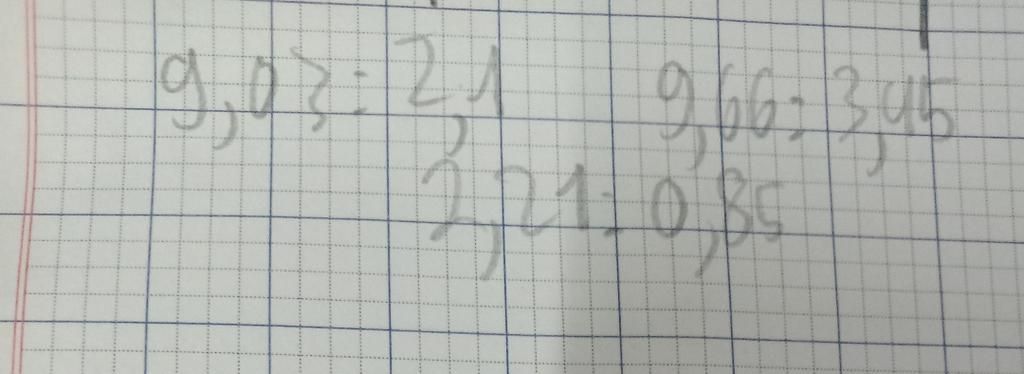 9,03 : 2,1 9,66 : 3,45
2,21 : 0,85